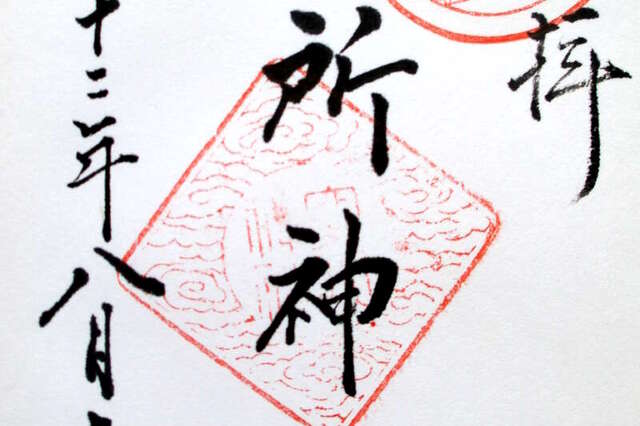 拝
所神
十二年八月